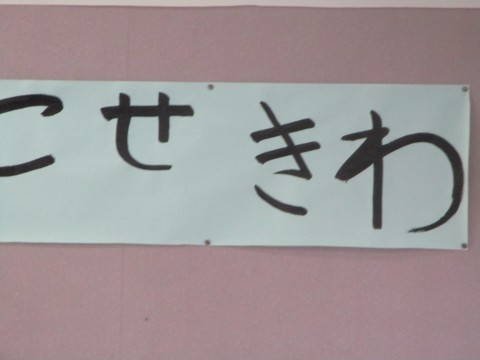 こせきわ